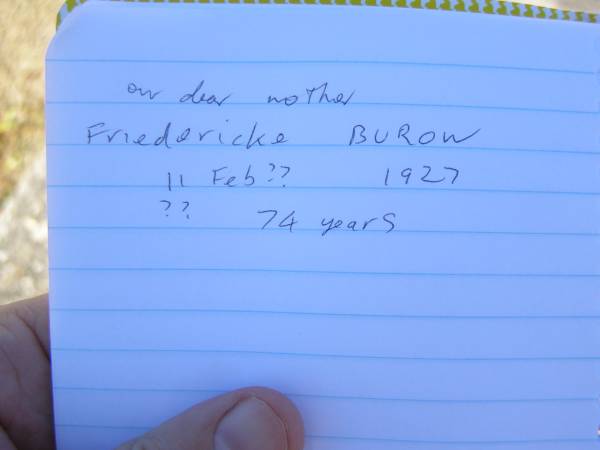 our dear mother
Friedericke BUROW
11 Feb?? 1927
?? 74 years